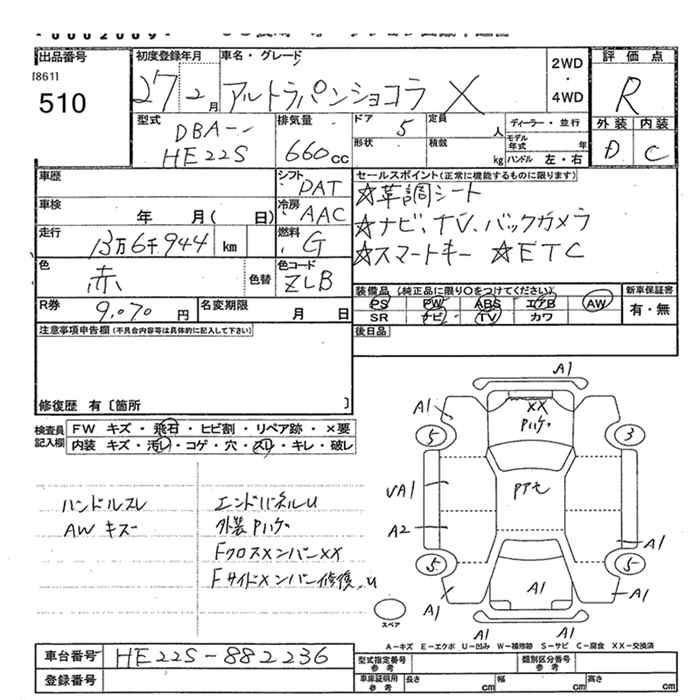 -0002009-
出品番号 初度登録年月 車名・グレード 2WD・4WD 評価点
[861]
510 27 2月 アルトラパンショコラ X R
型式 DBA- 排気量 ドア 5 定員 人 ディーラー・並行 外装 内装
HE22S 660cc 形状 積数 kg モデル年式 年 ハンドル 左・右 D C
車歴 シフト DAT セールスポイント(正常に機能するものに限ります)
車検 年 月( 日) 冷房 AAC ☆革調シート
走行 13万6千944 km 燃料 G ☆ナビ、TV、バックカメラ
☆スマートキー ☆ETC
色 赤 色替 色コード ZLB
装備品 (純正品に限り○をつけてください) 新車保証書
R券 9,070円 名変期限 月 日 PS PW ABS エアB AW 有・無
SR ナビ TV カワ
注意事項申告欄(不具合内容等は具体的に記入して下さい) 後日品
修復歴 有〔箇所 〕
検査員記入欄 FW キズ・飛石・ヒビ割・リペア跡・×要
内装 キズ・汚レ・コゲ・穴・スレ・キレ・破レ
ハンドルスレ エンドパネルU
AW キズ 外装Pハゲ
FクロスメンバーXX
Fサイドメンバー修復、U
A1
A1 XX
Pハゲ
5 3
UA1 PTモ
A2
A1
5 5
A1 A1 A1
A1 A1
スペア
A-キズ E-エクボ U-凹み W-補修跡 S-サビ C-腐食 XX-交換済
車台番号 HE22S-882236 型式指定番号 参考 類別区分番号 参考
登録番号 車庫証明用 参考 長さ cm 幅 cm 高さ cm